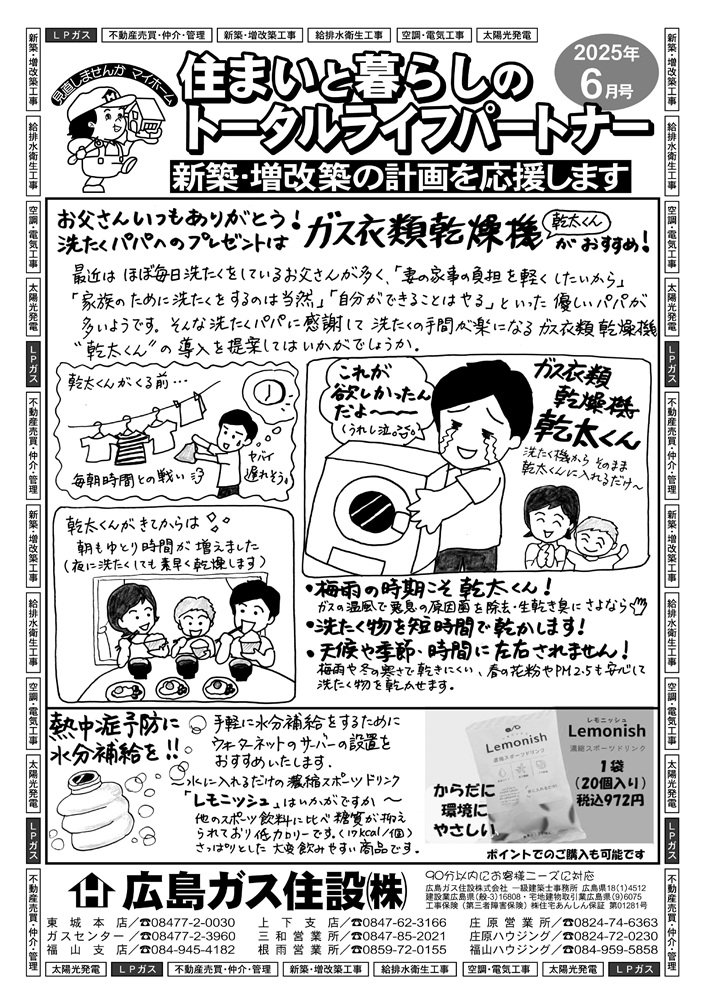 LPガス 不動産売買・仲介・管理 新築・増改築工事 給排水衛生工事 空調・電気工事 太陽光発電
新築・増改築工事
給排水衛生工事
空調・電気工事
太陽光発電
LPガス
不動産売買・仲介・管理
新築・増改築工事
給排水衛生工事
空調・電気工事
太陽光発電
LPガス
不動産売買・仲介・管理
見直しませんか マイホーム
住まいと暮らしの
トータルライフパートナー
2025年
6月号
新築・増改築の計画を応援します
お父さんいつもありがとう!
洗たくパパへのプレゼントは ガス衣類乾燥機 乾太くん がおすすめ!
最近は ほぼ毎日洗たくをしているお父さんが多く、「妻の家事の負担を軽くしたいから」
「家族のために洗たくをするのは当然」「自分ができることはやる」といった優しいパパが
多いようです。そんな洗たくパパに感謝して 洗たくの手間が楽になる ガス衣類乾燥機
"乾太くん"の導入を提案してはいかがでしょうか。
乾太くんがくる前…
毎朝時間との戦い
ヤバイ
遅れそう
これが
欲しかったん
だよ〜〜
(うれし泣)
ガス衣類
乾燥機
乾太くん
洗たく機から そのまま
乾太くんに入れるだけ〜
乾太くんがきてからは
朝もゆとり時間が増えました
(夜に洗たくしても素早く乾燥します)
・梅雨の時期こそ乾太くん!
ガスの温風で悪臭の原因菌を除去・生乾き臭にさよなら
・洗たく物を短時間で乾かします!
・天候や季節、時間に左右されません!
梅雨や冬の寒さで乾きにくい、春の花粉やPM2.5も安心して
洗たく物を乾かせます。
熱中症予防に
水分補給を!!
手軽に水分補給をするために
ウォーターネットのサーバーの設置を
おすすめいたします。
〜水に入れるだけの濃縮スポーツドリンク
「レモニッシュ」はいかがですか〜
他のスポーツ飲料に比べ糖質が抑え
られており低カロリーです。(17kcal/個)
さっぱりとした大変飲みやすい商品です。
Lemonish
濃縮スポーツドリンク
レモニッシュ
Lemonish
濃縮スポーツドリンク
1袋
(20個入り)
税込972円
からだに
環境に
やさしい
ポイントでのご購入も可能です
広島ガス住設(株)
90分以内にお客様ニーズに対応
広島ガス住設株式会社 一級建築士事務所 広島県18(1)4512
建設業広島県(般-3)16808・宅地建物取引業広島県(9)6075
工事保険(第三者障害保険)㈱住宅あんしん保証 第01281号
東城本店/☎08477-2-0030 上下支店/☎0847-62-3166 庄原営業所/☎0824-74-6363
ガスセンター/☎08477-2-3960 三和営業所/☎0847-85-2021 庄原ハウジング/☎0824-72-0230
福山支店/☎084-945-4182 根雨営業所/☎0859-72-0155 福山ハウジング/☎084-959-5858
新築・増改築工事
給排水衛生工事
空調・電気工事
太陽光発電
LPガス
不動産売買・仲介・管理
新築・増改築工事
給排水衛生工事
空調・電気工事
太陽光発電
LPガス
不動産売買・仲介・管理
太陽光発電 LPガス 不動産売買・仲介・管理 新築・増改築工事 給排水衛生工事 空調・電気工事 太陽光発電 LPガス